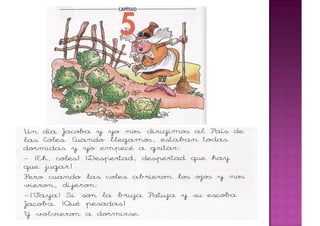 CAPÍTULO
5
Un día Jacoba y yo nos dirigimos al País de
las Coles. Cuando llegamos, estaban todas
dormidas y yo empecé a gritar:
- ¡Eh, coles! ¡Despertad, despertad que hay
que jugar!
Pero cuando las coles abrieron los ojos y nos
vieron, dijeron:
-¡Vaya! Si son la bruja Patuja y su escoba
Jacoba. ¡Qué pesadas!
Y volvieron a dormirse.